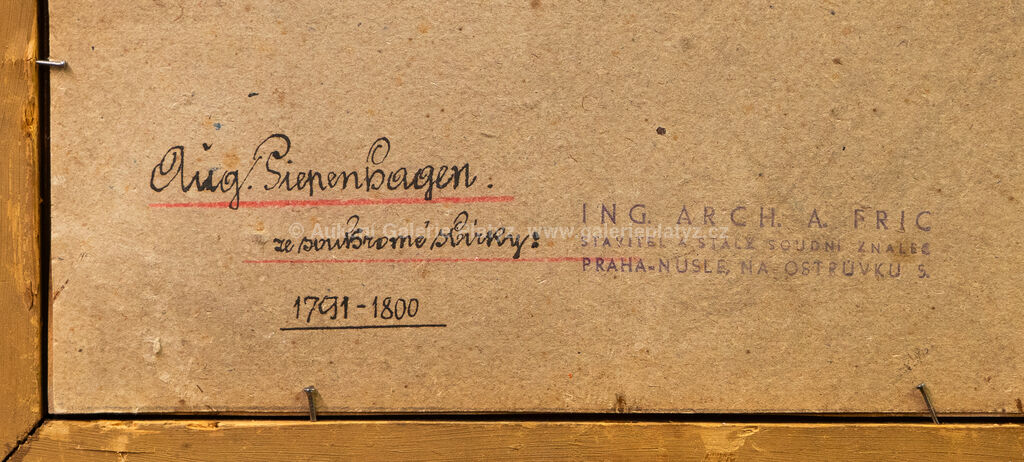 Aug. Piepenhagen.
ze soukromé sbírky:
1791-1800
ING. ARCH. A. FRIC
STAVITEL A STÁLÝ SOUDNÍ ZNALEC
PRAHA-NUSLE, NA OSTRŮVKU 5.
© Aukční Galerie Platýz, www.galerieplatyz.cz